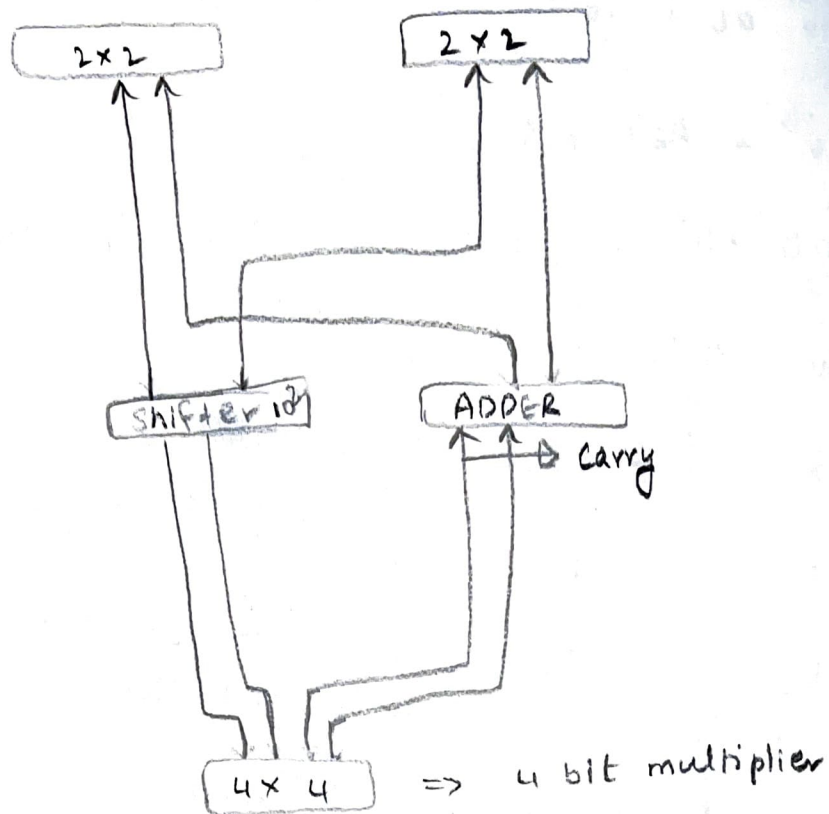 2 × 2
2 × 2
Shifter 10²
ADDER
Carry
4 × 4 => 4 bit multiplier